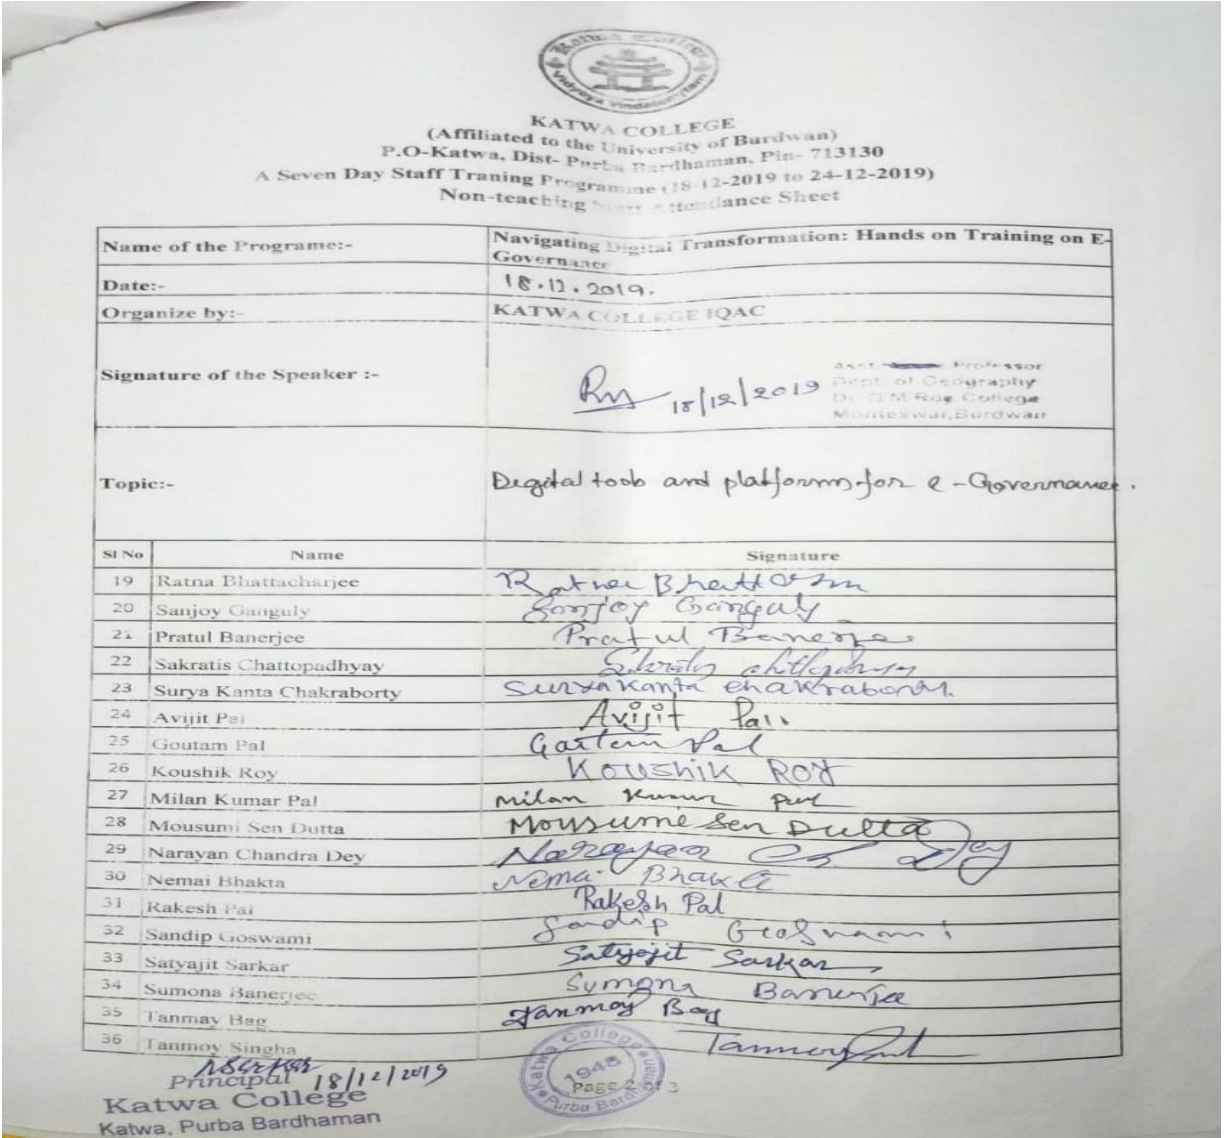 Katwa College
Vidyaya Vindateamrtam
KATWA COLLEGE
(Affiliated to the University of Burdwan)
P.O-Katwa, Dist- Purba Bardhaman, Pin- 713130
A Seven Day Staff Traning Programme (18-12-2019 to 24-12-2019)
Non-teaching Staff Attendance Sheet
Name of the Programe:- Navigating Digital Transformation: Hands on Training on E-
Governance
Date:- 18.12.2019.
Organize by:- KATWA COLLEGE IQAC
Signature of the Speaker :- 18/12/2019
Asst. Professor
Dept. of Geography
Dr. G M Roy College
Monteswar, Burdwan
Topic:- Degital tools and platforms for e-Governance.
Sl No Name Signature
19 Ratna Bhattacharjee Ratna
20 Sanjoy Ganguly Sanjoy Ganguly
21 Pratul Banerjee Pratul Banerjee
22 Sakratis Chattopadhyay
23 Surya Kanta Chakraborty Surya Kanta Chakraborty.
24 Avijit Pal Avijit Pal.
25 Goutam Pal Goutam Pal
26 Koushik Roy Koushik Roy
27 Milan Kumar Pal Milan Kumar Pal
28 Mousumi Sen Dutta Mousume Sen Dutta
29 Narayan Chandra Dey Narayan Ch. Dey
30 Nemai Bhakta Nemai Bhakta
31 Rakesh Pal Rakesh Pal
32 Sandip Goswami Sandip Goswami
33 Satyajit Sarkar Satyajit Sarkar
34 Sumona Banerjee Sumona Banerjee
35 Tanmay Bag Tanmoy Bag
36 Tanmoy Singha Tanmoy
NSarkar
Principal 18/12/2019
Katwa College
Katwa, Purba Bardhaman
Katwa College
1948
Purba Bardhaman
Page 2 of 3